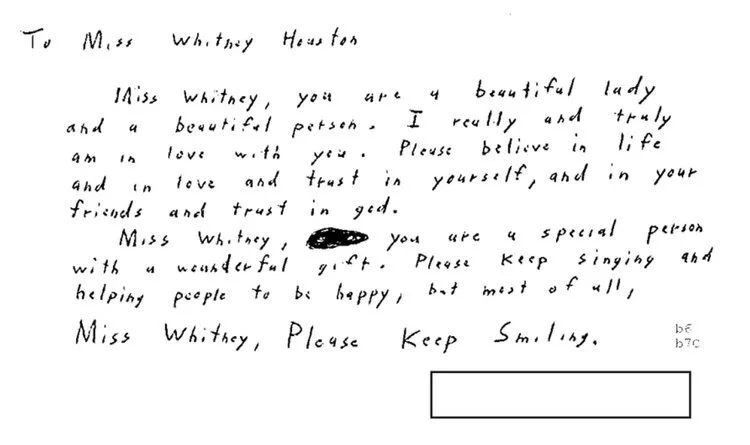 To Miss Whitney Houston
Miss Whitney, you are a beautiful lady
and a beautiful person. I really and truly
am in love with you. Please believe in life
and in love and trust in yourself, and in your
friends and trust in god.
Miss Whitney, you are a special person
with a wounderful gift. Please Keep singing and
helping people to be happy, but most of all,
Miss Whitney, Please Keep Smiling.
b6
b7C